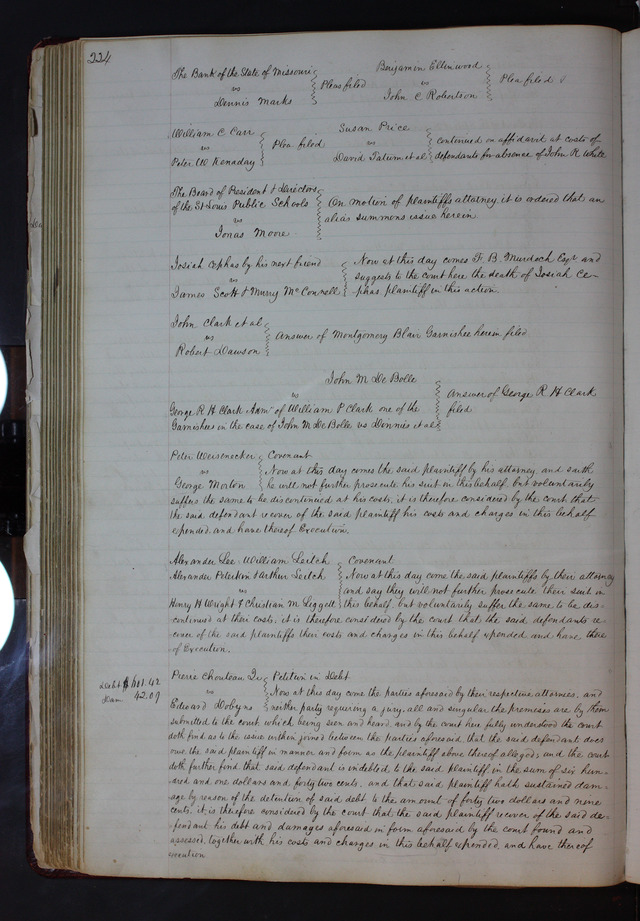 224
The Bank of the State of Missouri
vs
Dennis Marks
Pleas filed
Benjamin Ellenwood
vs
John C Robertson
Plea filed
William C Carr
vs
Peter W Kenaday
Plea filed
Susan Price
vs
David Tatum et al
continued on affidavit at costs of
defendants for absence of John R White
The Board of President & Directors
of the St Louis Public Schools
vs
Jonas Moore
On motion of plaintiffs attorney it is ordered that an
alias summons issue herein
Josiah Cephas by his next friend
vs
James Scott & Murry McConnell
Now at this day comes F. B. Murdoch Esqr and
suggests to the court here the death of Josiah Ce-
phas plaintiff in this action.
John Clark et al
vs
Robert Dawson
Answer of Montgomery Blair Garnishee herein filed
John M De Bolle
vs
George R H Clark Admr of William P Clark one of the
Garnishees in the case of John M De Bolle vs Dennis et al
Answer of George R H Clark
filed
Peter Weisenecker
vs
George Morton
Covenant
Now at this day comes the said plaintiff by his attorney and saith
he will not further prosecute his suit in this behalf, but voluntarily
suffers the same to be discontinued at his costs, it is therefore considered by the court that
the said defendant recover of the said plaintiff his costs and charges in this behalf
expended, and have thereof Execution.
Alexander Lee William Leitch
Alexander Peterkin & Arthur Leitch
vs
Henry H Wright & Christian M Leggett
Covenant
Now at this day come the said plaintiffs by their attorney
and say they will not further prosecute their suit in
this behalf, but voluntarily suffer the same to be dis-
continued at their costs, it is therefore considered by the court that the said defendants re-
cover of the said plaintiffs their costs and charges in this behalf expended and have there
of Execution.
Debt $601.42
Dam 42.09
Pierre Chouteau Jr
vs
Edward Dobyns
Petition in Debt
Now at this day come the parties aforesaid by their respective attornies, and
neither party requiring a jury, all and singular the premises are by them
submitted to the court, which being seen and heard, and by the court here fully understood the court
doth find as to the issue within joined between the parties aforesaid, that the said defendant does
owe the said plaintiff in manner and form as the plaintiff above thereof alleged, and the court
doth further find that said defendant is indebted to the said plaintiff in the sum of six hun-
dred and one dollars and forty two cents, and that said plaintiff hath sustained dam-
age by reason of the detention of said debt to the amount of forty two dollars and nine
cents, it is therefore considered by the court that the said plaintiff recover of the said de-
fendant his debt and damages aforesaid in form aforesaid by the court found and
assessed, together with his costs and charges in this behalf expended, and have thereof
execution